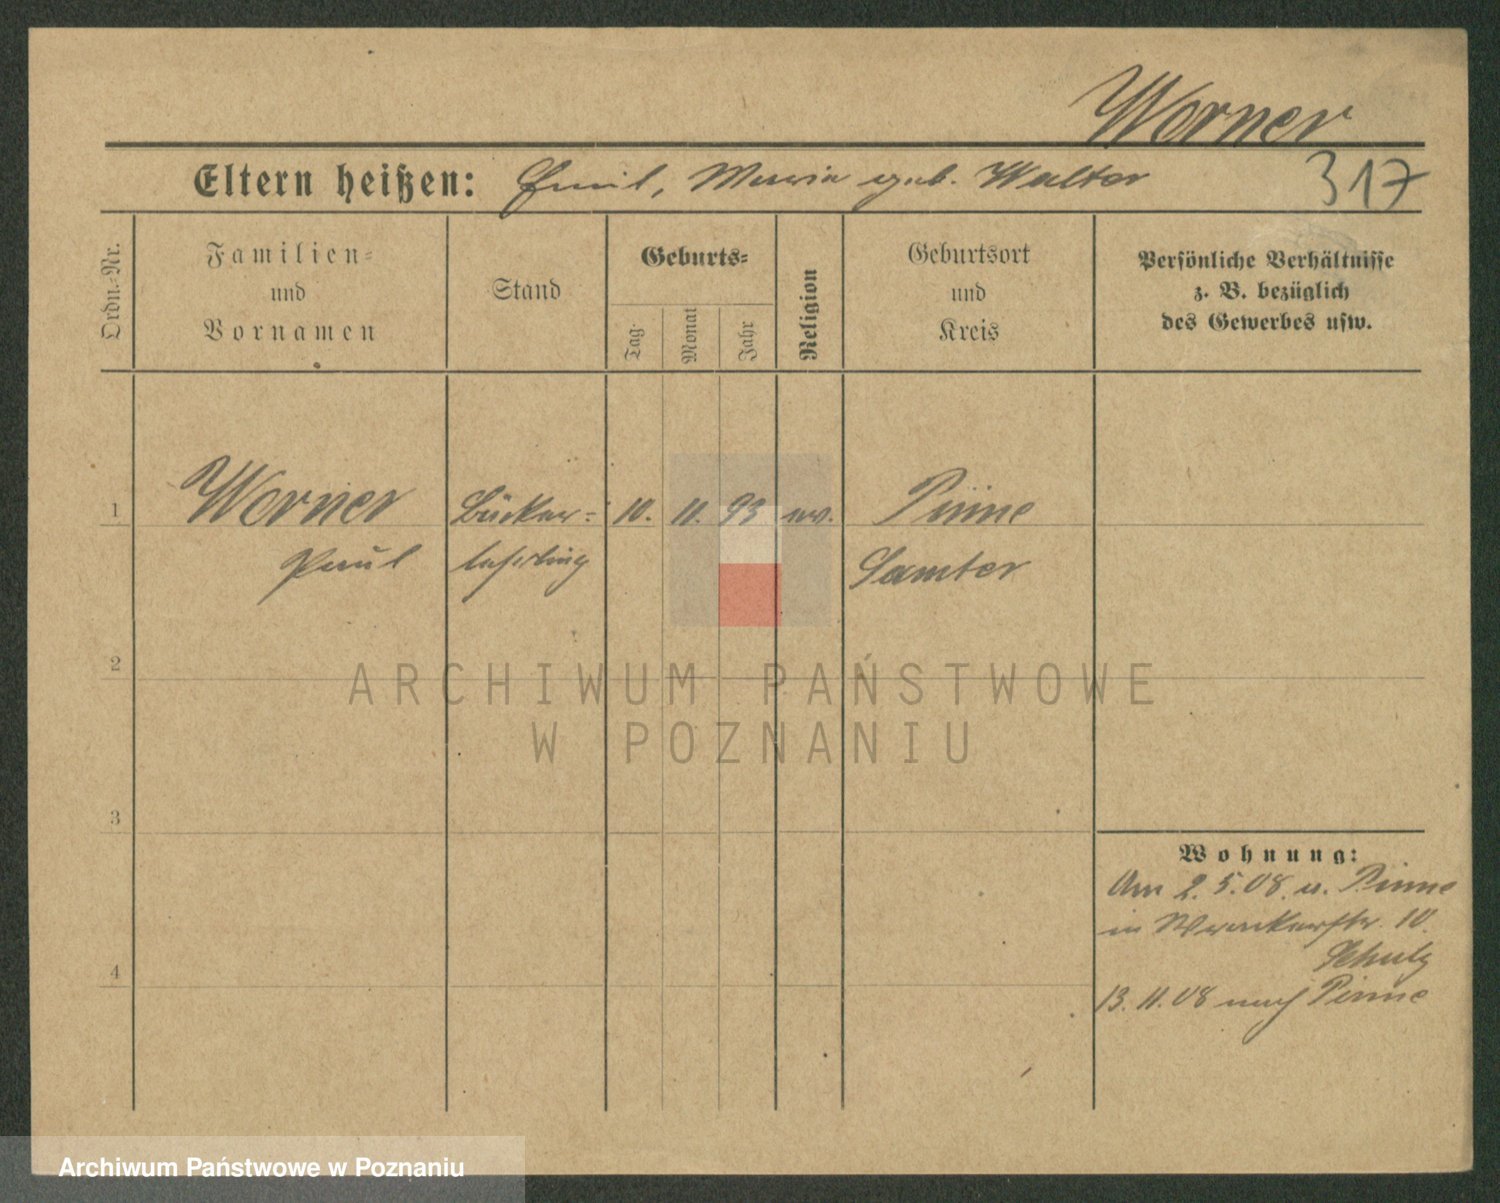 Werner
Eltern heißen: Emil, Maria geb. Walter
317
Ordn.-Nr.
Familien-
und
Vornamen
Stand
Geburts-
Tag
Monat
Jahr
Religion
Geburtsort
und
Kreis
Persönliche Verhältnisse
z. B. bezüglich
des Gewerbes usw.
1 Werner Bäcker- 10. 11. 93 ev. Pinne
Paul lehrling Samter
2
3
4
Wohnung:
Am 2.5.08 v. Pinne
in 10.
Schulz
13.11.08 nach Pinne
ARCHIWUM PAŃSTWOWE
W POZNANIU
Archiwum Państwowe w Poznaniu